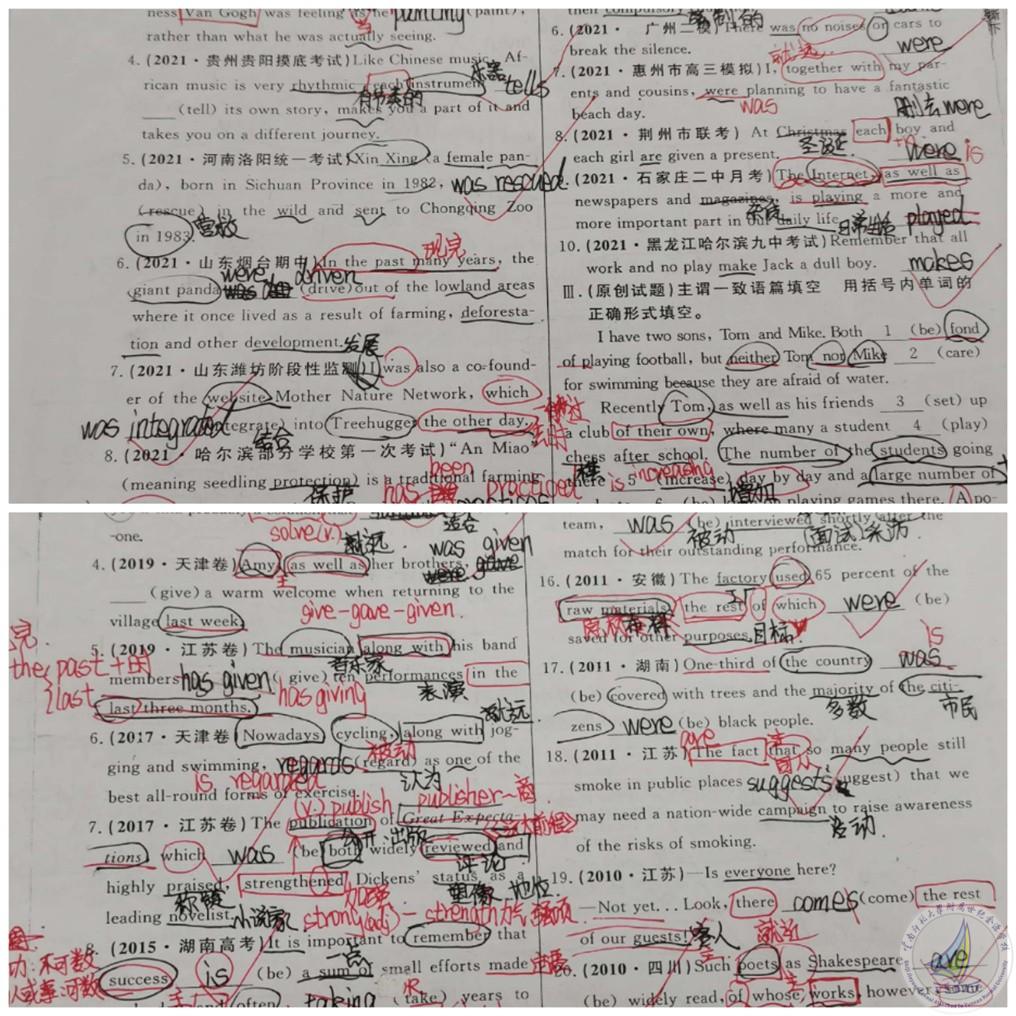 ness Van Gogh was feeling as he painting (paint),
rather than what he was actually seeing.
4. (2021·贵州贵阳摸底考试) Like Chinese music, Af-
rican music is very rhythmic, each instrument tells
乐器
有节奏的
(tell) its own story, makes you a part of it and
takes you on a different journey.
5. (2021·河南洛阳统一考试) Xin Xing (a female pan-
da), born in Sichuan Province in 1982, was rescued
(rescue) in the wild and sent to Chongqing Zoo
in 1983. 营救
6. (2021·山东烟台期中) In the past many years, the
现完
giant panda were driven (drive) out of the lowland areas
where it once lived as a result of farming, deforesta-
tion and other development. 发展
7. (2021·山东潍坊阶段性监测) I was also a co-found-
er of the website Mother Nature Network, which
was integrated (integrate) into Treehugger the other day.
结合
8. (2021·哈尔滨部分学校第一次考试) “An Miao”
(meaning seedling protection) is a traditional farming
保护 has been practiced
their compulsory
6. (2021·广州二模) There was no noises or cars to
break the silence. were
就远
7. (2021·惠州市高三模拟) I, together with my par-
ents and cousins, were planning to have a fantastic
was
beach day. 删去were
8. (2021·荆州市联考) At Christmas each boy and
each girl are given a present. 圣诞节 were is
(2021·石家庄二中月考) The Internet, as well as
newspapers and magazines, is playing a more and
more important part in our daily life. 日常生活 played
杂志
10. (2021·黑龙江哈尔滨九中考试) Remember that all
work and no play make Jack a dull boy. makes
Ⅲ. (原创试题) 主谓一致语篇填空 用括号内单词的
正确形式填空。
I have two sons, Tom and Mike. Both 1 (be) fond
of playing football, but neither Tom nor Mike 2 (care)
for swimming because they are afraid of water.
Recently Tom, as well as his friends 3 (set) up
a club of their own, where many a student 4 (play)
chess after school. The number of the students going
there 5 (increase) day by day and a large number of
is increasing
增加
6 (be) playing games there. A po-
-one. solve(v.) 适合
4. (2019·天津卷) Amy, as well as her brothers, was given
就远
主
(give) a warm welcome when returning to the
village last week. give-gave-given
5. (2019·江苏卷) The musician along with his band
音乐家
members has given (give) ten performances in the
last three months. has giving 表演
the past + 时
last
6. (2017·天津卷) Nowadays, cycling, along with jog-
就远
ging and swimming, regards (regard) as one of the
被动
is regarded 认为
best all-round forms of exercise.
(v.) publish publisher~商
7. (2017·江苏卷) The publication of Great Expecta-
出版
tions, which was (be) both widely reviewed and
评论
highly praised, strengthened Dickens' status as a
称赞 加强 地位
leading novelist. 小说家 strong(adj) - strength
8. (2015·湖南高考) It is important to remember that
success is (be) a sum of small efforts made
一点
不可数
可数
and often taking (take) years to
team, was (be) interviewed shortly after the
被动 (面试)采访
match for their outstanding performance.
16. (2011·安徽) The factory used 65 percent of the
工厂
raw materials, the rest of which were (be)
saved for other purposes. 目标
17. (2011·湖南) One-third of the country was
is
(be) covered with trees and the majority of the citi-
多数 市民
zens were (be) black people.
are
18. (2011·江苏) The fact that so many people still
smoke in public places suggests (suggest) that we
may need a nation-wide campaign to raise awareness
活动
of the risks of smoking.
19. (2010·江苏) —Is everyone here?
—Not yet… Look, there comes (come) the rest
of our guests! 客人 就近
20. (2010·四川) Such poets as Shakespeare are
(be) widely read, of whose works, however, some